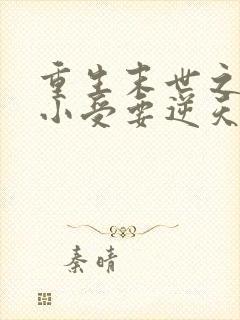 重生末世之
小受要逆天
秦晴